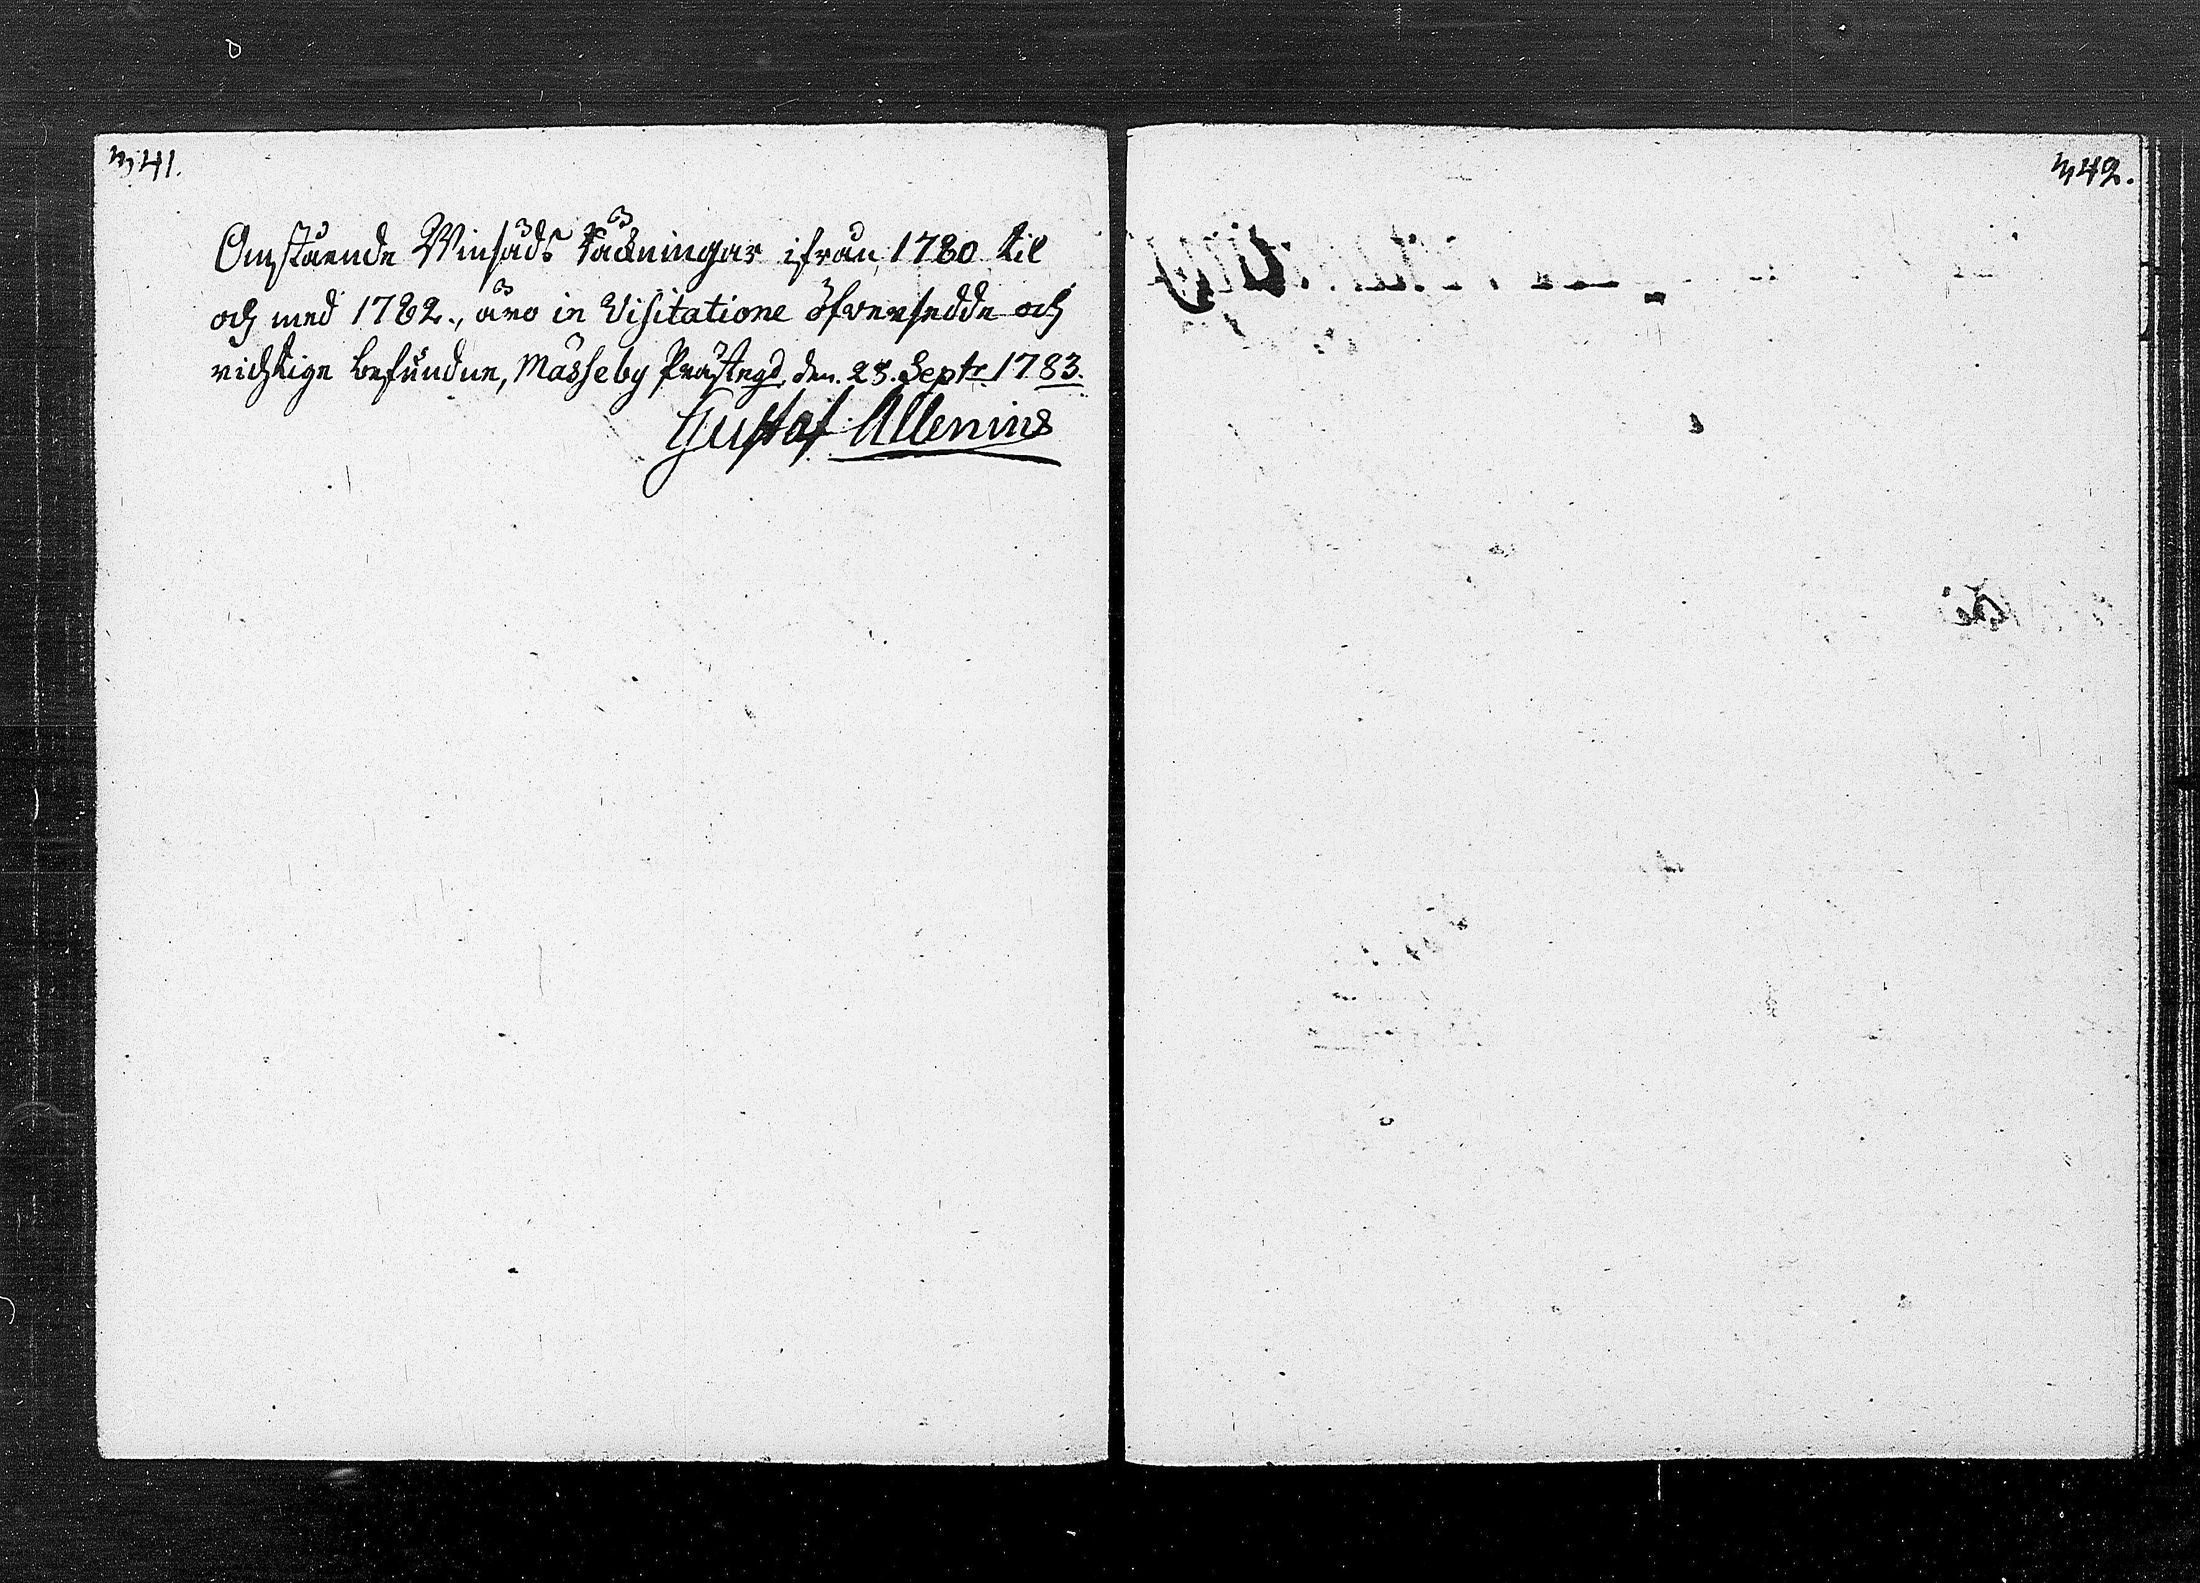 341.
Omstående Winsäds Räkningar ifrån 1780 til
och med 1782., äro in Visitatione öfversedde och
richtige befundne, Mässeby Prästegd, den. 23. Septr. 1783.
Gustaf Allenius
342.